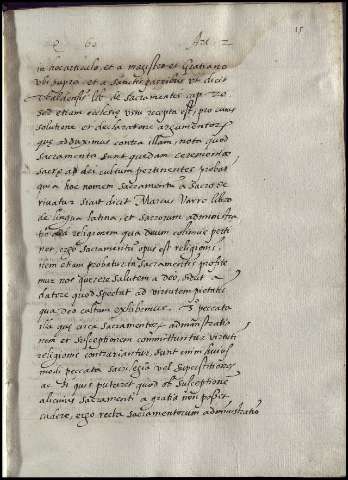 Q 60 Art. 2 15
in hoc articulo, et a magistro et Gratiano
ubi supra, et a sanctis patribus ut dicit
Valdensis lib de sacramentis cap 20
sed etiam ecclesię usu recepta est, pro cuius
solutione et declaratione argumentorum
quę adduximus contra illam, noto quod
sacramenta sunt quędam ceremonię
sacrę ad dei cultum pertinentes probat
quia hoc nomen sacramentum a sacro de
rivatur sicut dicit Marcus Varro libro
de lingua latina, et sacrorum administra
tio ad religionem qua deum colimus perti
net, ergo sacramentum opus est religionis,
item etiam probatur in sacramentis profite
mur nos querere salutem a deo, sed
quod spectat ad virtutem pietatis
qua deo cultum exhibemus. peccata
illa quę circa sacramentorum administratio
nem et susceptionem committuntur virtuti
religionis contrariantur, sunt enim huius
modi peccata sacrilegia vel superstitiones
ac si quis putaret quod ob susceptione
alicuius sacramenti a gratia non posset
cadere, ergo recta sacramentorum administratio